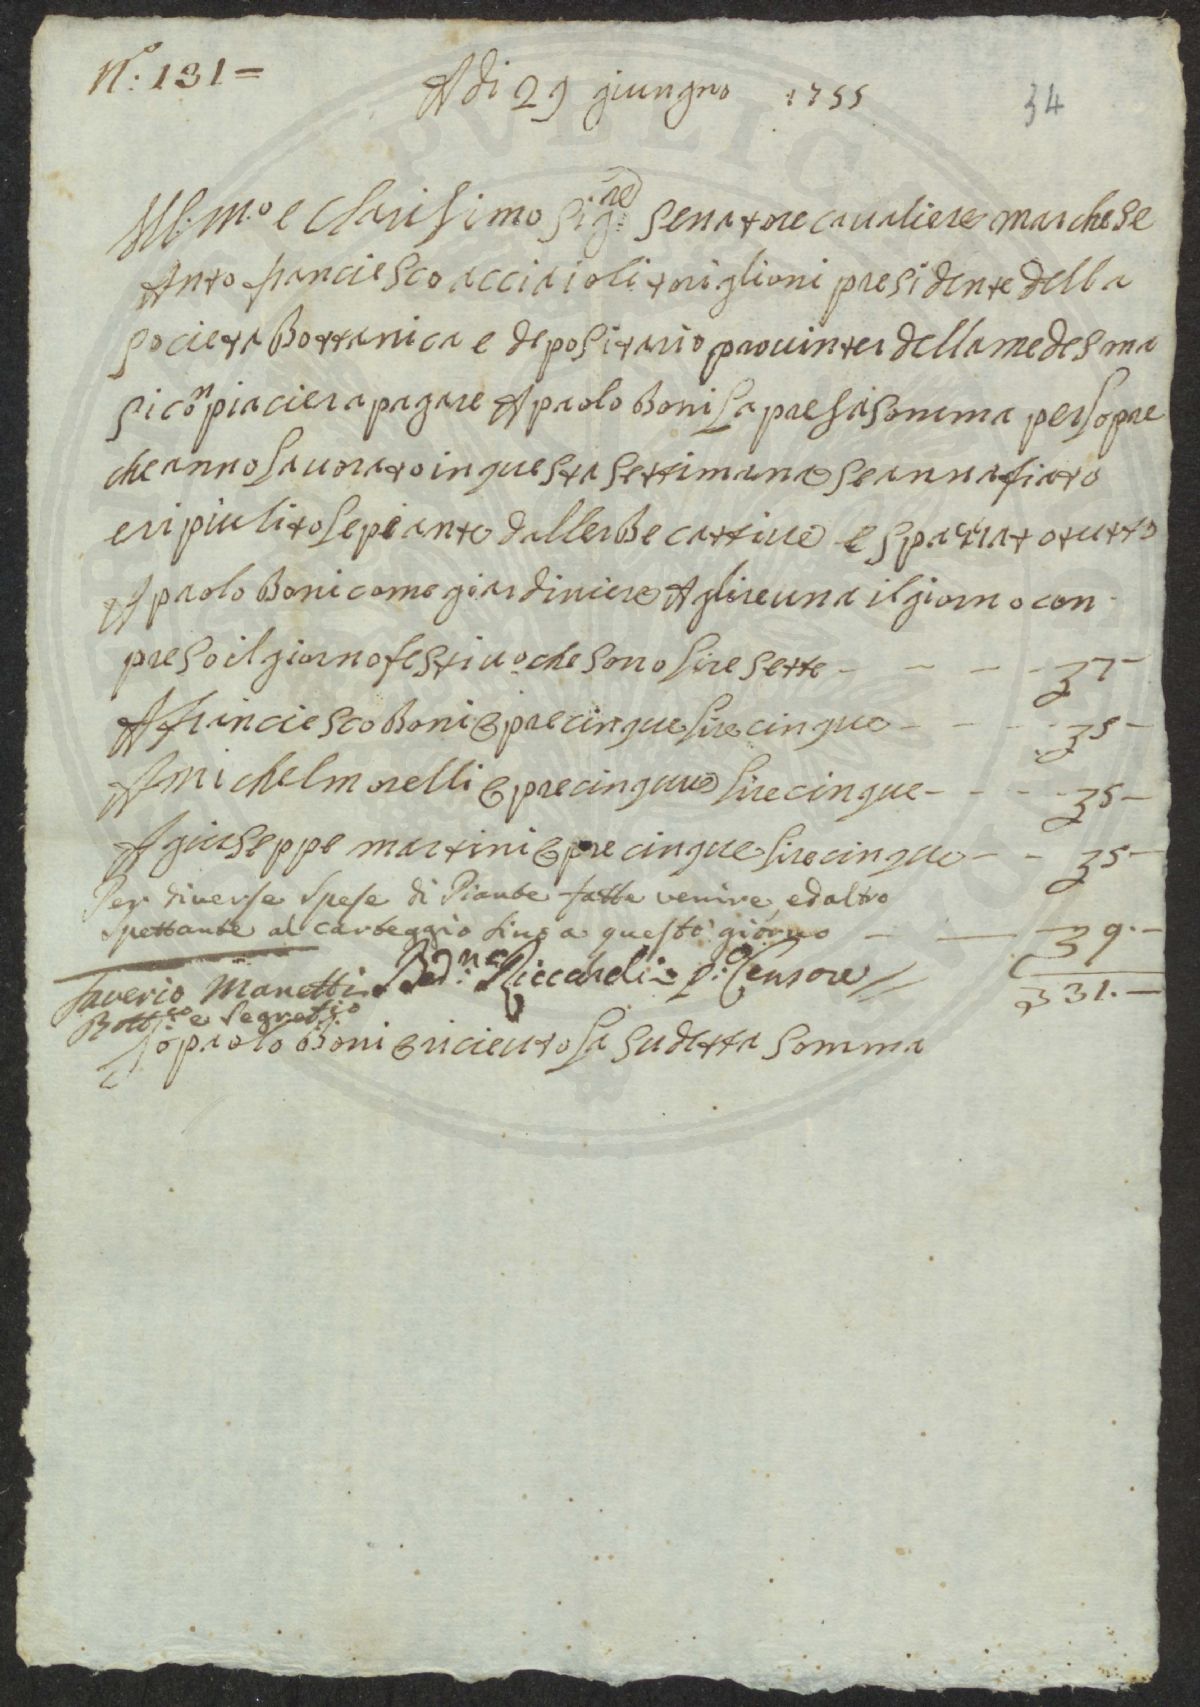 N.° 131 =
A di 29 giungno 1755
34
Ill.mo e Clarisimo Sig.re Senatore cavaliere marchese
Anto franciesco acciaioli toriglioni presidente della
societa Bottanica e depositario provinter della medesma
si conpiaciera pagare A paolo Boni la presa somma per lopre
che anno lavorato in questa settimana se annafiato
e ripiulito le piante dallerbe cattiue e spaciato tutto
A paolo Boni come giardiniere A lire una il giorno con
preso il giorno festiuo che sono lire sette - - - - £ 7 -
A franciesco Boni opre cinque lire cinque - - - £ 5 -
A michel morelli opre cinque lire cinque - - - - £ 5 -
A giuseppe martini opre cinque lire cinque - - £ 5 -
Per diverse spese di Piante fatte venire, ed altro
spettante al carteggio sino a questo giorno - — £ 9. -
£ 31. —
Saverio Manetti Bed.no Riccardi p.o Censore
Bott.co e Segret.io
Io paolo Boni o riceuto la sudetta somma
PVBLIC